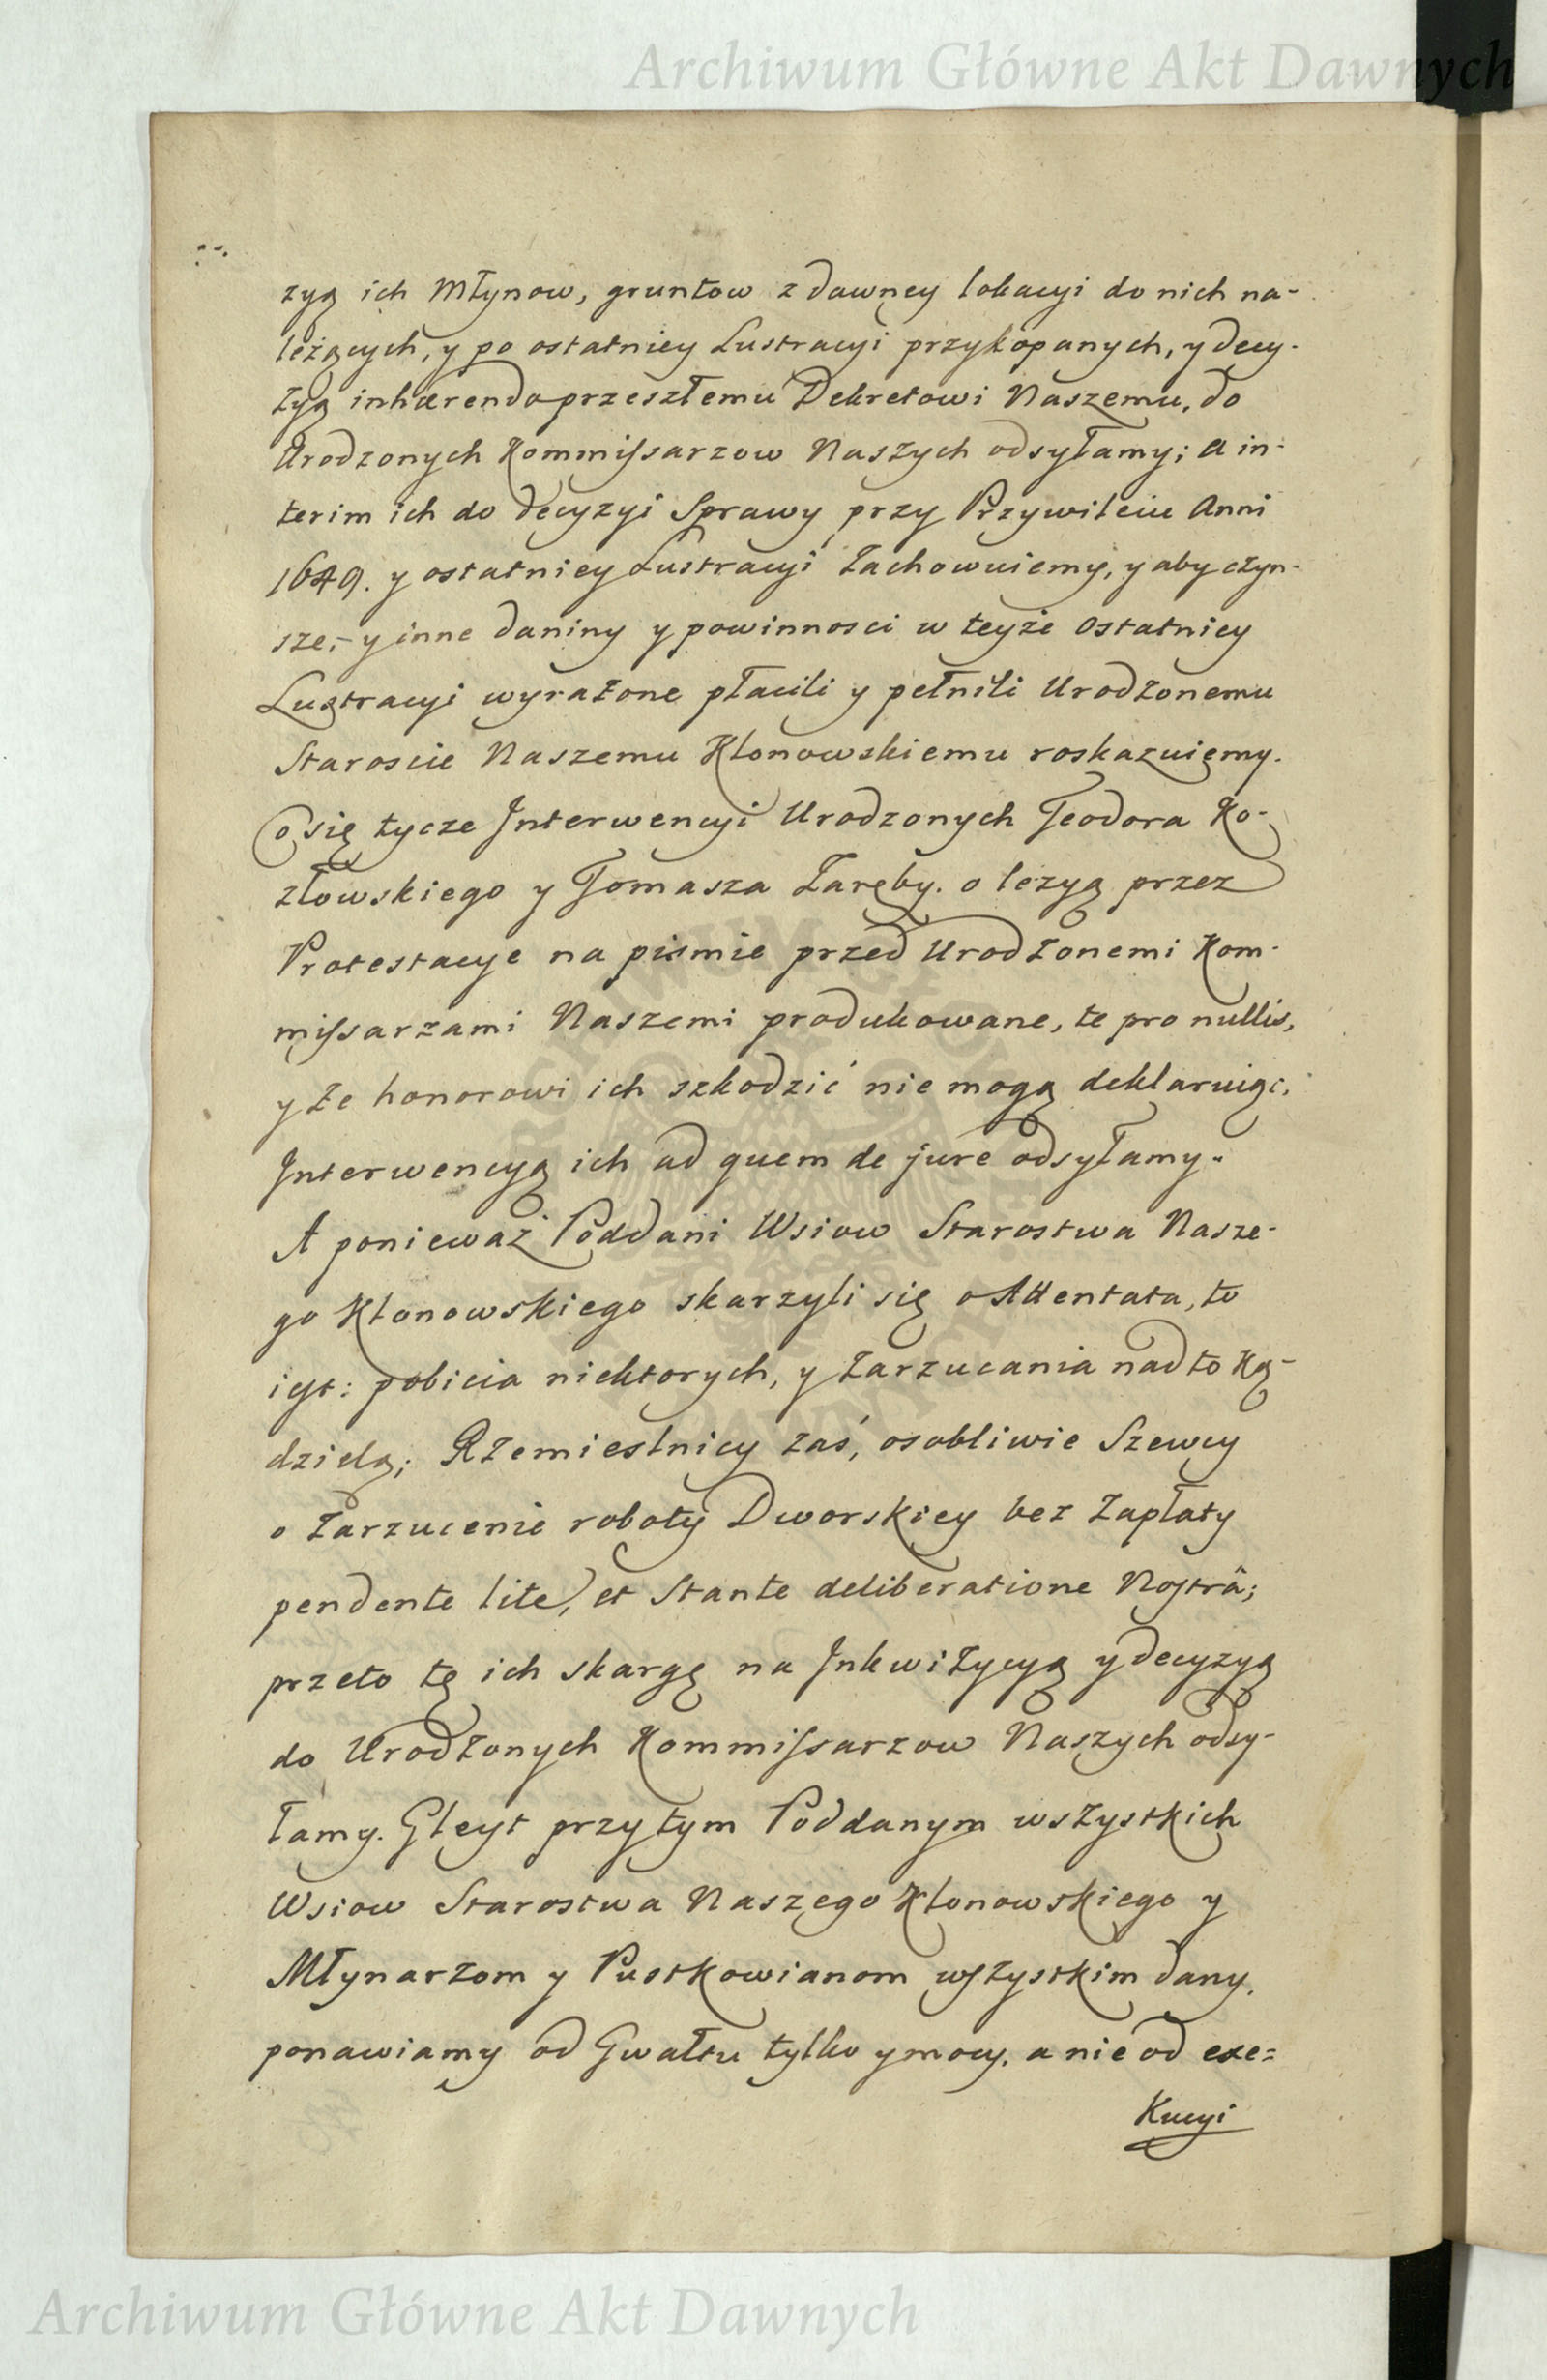 Archiwum Główne Akt Dawnych
zyą ich Młynow, gruntow z dawney lokacyi do nich na-
leżących, y po ostatniey Lustracyi przykopanych, y decy-
zyą inhærendo przeszłemu Dekretowi Naszemu, do
Urodzonych Kommissarzow Naszych odsyłamy; a in-
terim ich do decyzyi Sprawy przy Przywileiu Anni
1649. y ostatniey Lustracyi zachowuiemy, y aby czyn-
sze, y inne daniny y powinnosci w teyże ostatniey
Lustracyi wyrażone płacili y pełnili Urodzonemu
Staroscie Naszemu Klonowskiemu roskazuiemy.
Co się tycze Interwencyi Urodzonych Teodora Ko-
złowskiego y Tomasza Zaręby. o lezyą przez
Protestacye na pismie przed Urodzonemi Kom-
missarzami Naszemi produkowane, te pro nullis,
y że honorowi ich szkodzić nie mogą deklaruiąc,
Interwencyą ich ad quem de jure odsyłamy.
A ponieważ Poddani Wsiow Starostwa Nasze-
go Klonowskiego skarzyli się o Attentata, to
iest: pobicia niektorych, y zarzucania nadto Ką-
dzielą; Rzemieslnicy zaś, osobliwie Szewcy
o zarzucenie roboty Dworskiey bez zapłaty
pendente lite, et stante deliberatione Nostrâ;
przeto tę ich skargę na Inkwizycyą y decyzyą
do Urodzonych Kommissarzow Naszych odsy-
łamy. Gleyt przytym Poddanym wszystkich
Wsiow Starostwa Naszego Klonowskiego y
Młynarzom y Pustkowianom wszystkim dany,
ponawiamy od Gwałtu tylko y mocy, a nie od exe=
Kucyi
Archiwum Główne Akt Dawnych